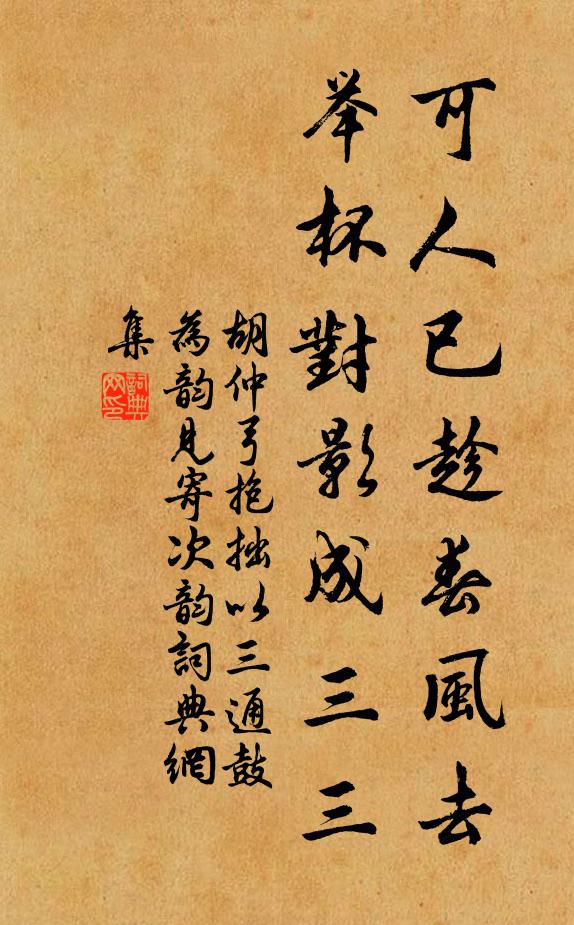 可人已趁春風去
举杯對影成三三
胡仲弓抱拙以三通鼓
為韵見寄次韵詞典網
集
詞典
网印